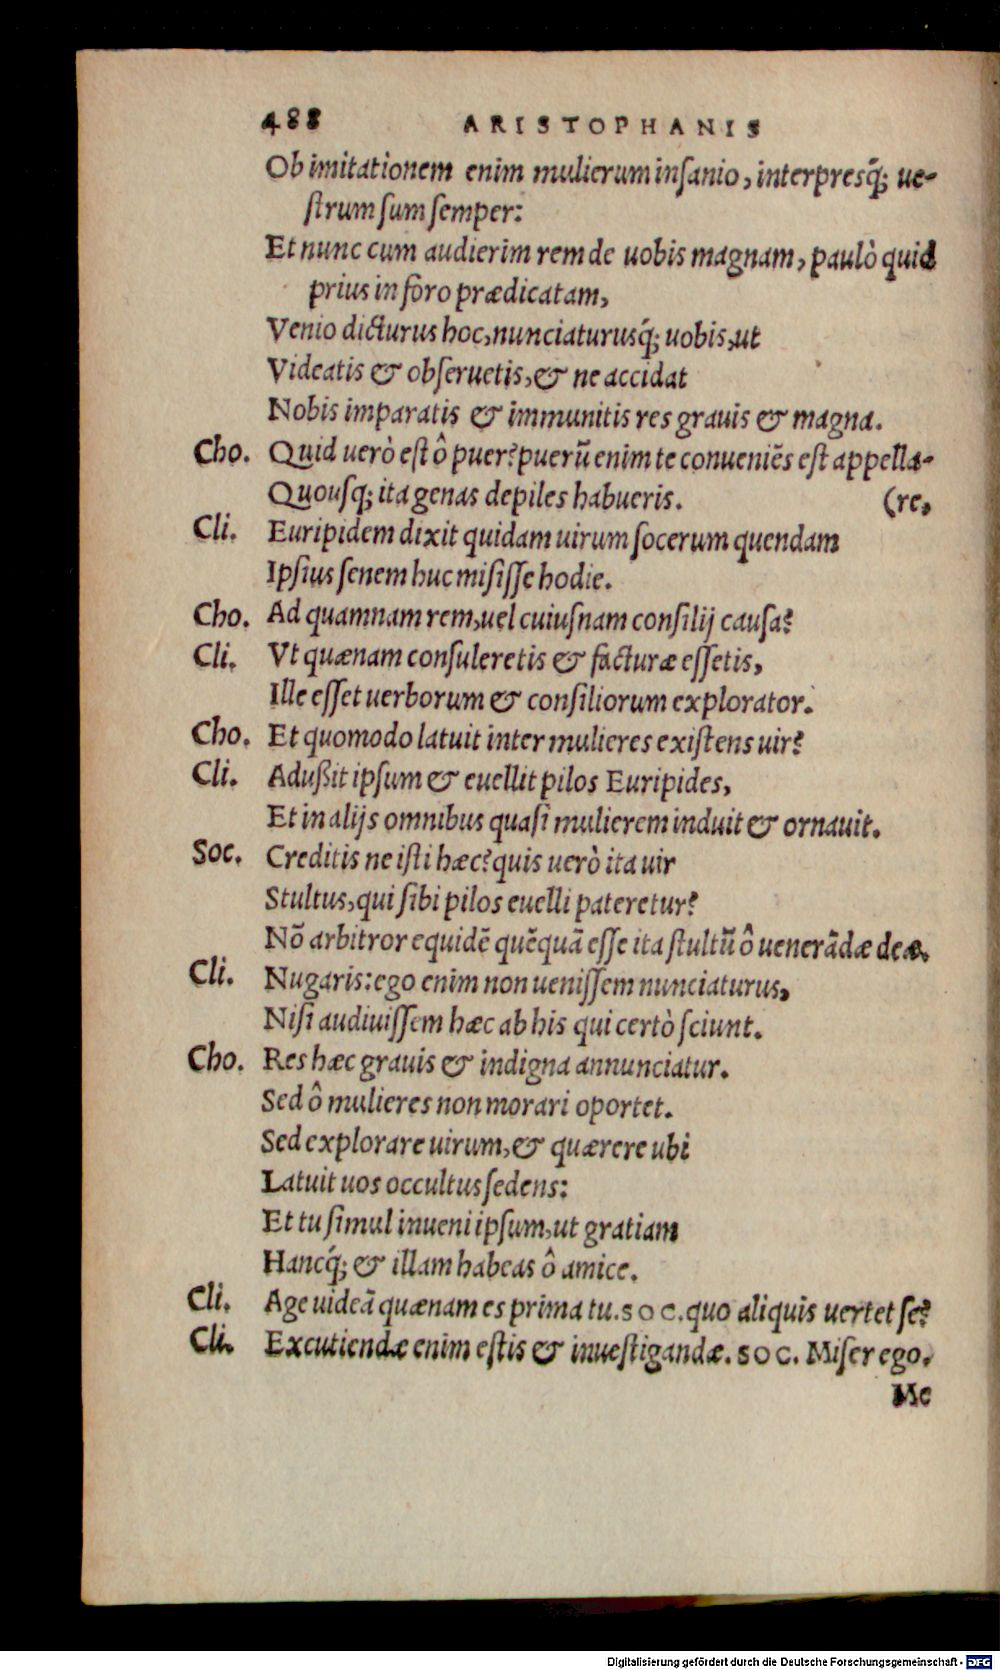 488 ARISTOPHANIS
Ob imitationem enim mulierum inſanio, interpresq́; ue-
ſtrum ſum ſemper:
Et nunc cum audierim rem de uobis magnam, paulò quid
prius in foro prædicatam,
Venio dicturus hoc, nunciaturusq́; uobis, ut
Videatis & obſeruetis, & ne accidat
Nobis imparatis & immunitis res grauis & magna.
Cho. Quid uerò eſt ô puer? puerũ enim te conueniẽs eſt appella-
Quouſq; ita genas depiles habueris. (re,
Cli. Euripidem dixit quidam uirum ſocerum quendam
Ipſius ſenem huc miſiſſe hodie.
Cho. Ad quamnam rem, uel cuiuſnam conſilij cauſa?
Cli. Vt quænam conſuleretis & facturæ eſſetis,
Ille eſſet uerborum & conſiliorum explorator.
Cho. Et quomodo latuit inter mulieres exiſtens uir?
Cli. Adußit ipſum & euellit pilos Euripides,
Et in alijs omnibus quaſi mulierem induit & ornauit.
Soc. Creditis ne iſti hæc? quis uerò ita uir
Stultus, qui ſibi pilos euelli pateretur?
Nõ arbitror equidẽ quẽquã eſſe ita ſtultũ ô uenerãdæ deæ.
Cli. Nugaris: ego enim non ueniſſem nunciaturus,
Niſi audiuiſſem hæc ab his qui certò ſciunt.
Cho. Res hæc grauis & indigna annunciatur.
Sed ô mulieres non morari oportet.
Sed explorare uirum, & quærere ubi
Latuit uos occultus ſedens:
Et tu ſimul inueni ipſum, ut gratiam
Hancq́; & illam habeas ô amice.
Cli. Age uideã quænam es prima tu. SOC. quo aliquis uertet ſe?
Cli. Excutiendæ enim eſtis & inueſtigandæ. SOC. Miſer ego.
Me
Digitalisierung gefördert durch die Deutsche Forschungsgemeinschaft - DFG